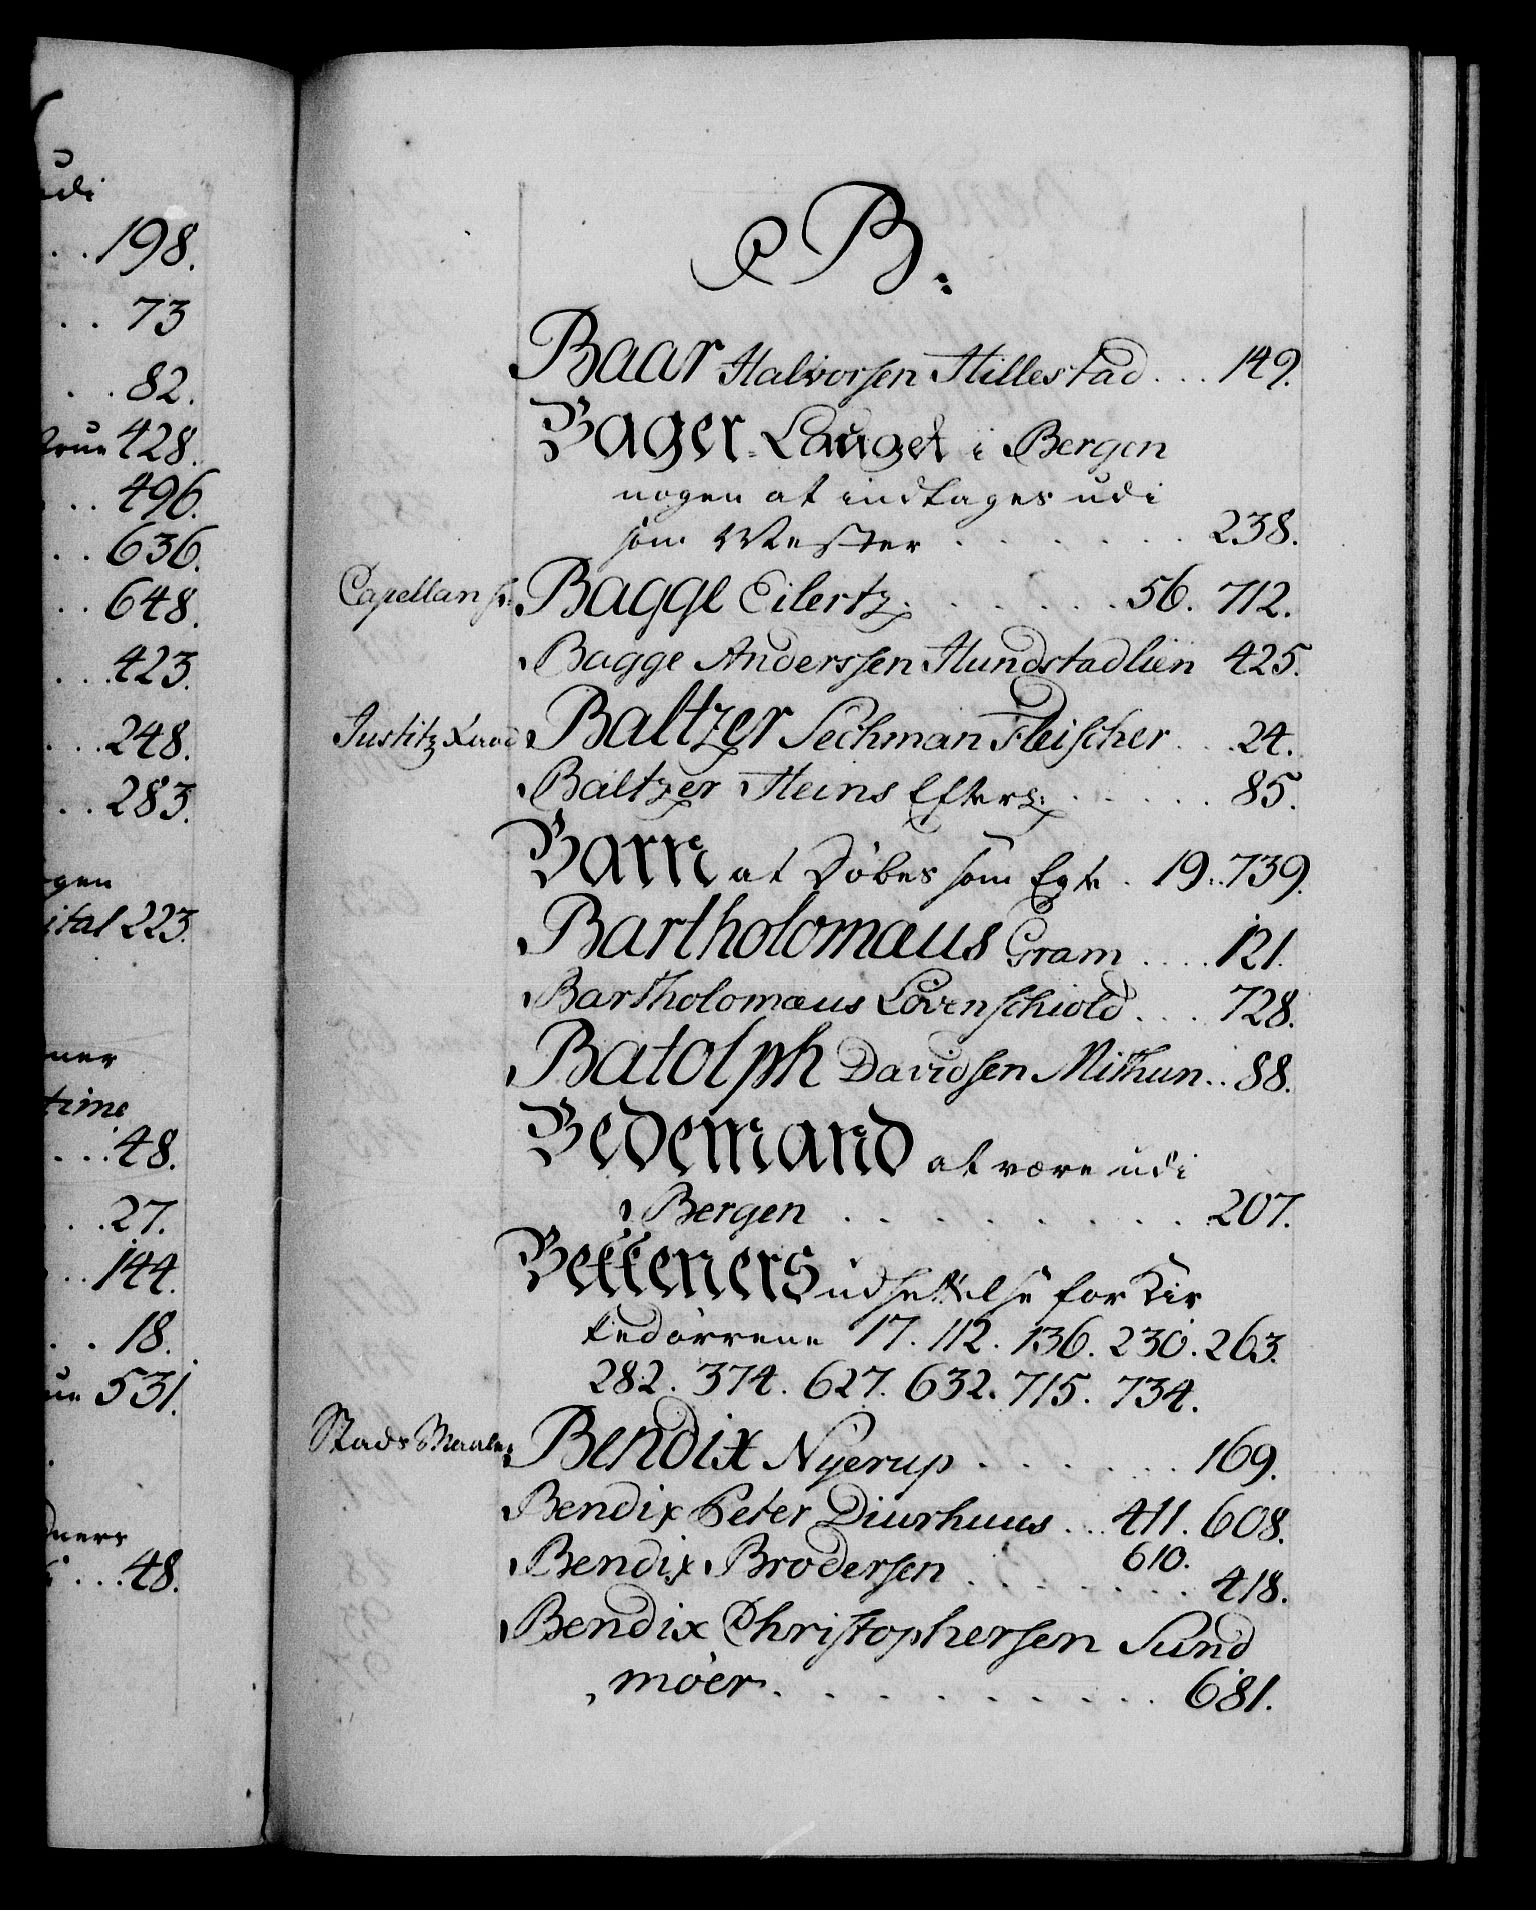 udi
198.
73
82.
428.
496.
636.
648.
423.
248.
283.
223.
48.
27.
144.
18.
531.
48.
B.
Baar Halvorsen Hillestad . . . 149.
Bager-Lauget i Bergen
nogen at indtages udi
som Mester . . . . . . . 238.
Capellan Hr. Bagge Eilertz . . . . . . 56. 712.
Bagge Anderssen Hundstadlien 425.
Justitz Raad Baltzer Sechman Fleischer . . . 24.
Baltzer Heins Efterl: . . . . . 85.
Barn at Döbes som Egte . 19. 739.
Bartholomæus Gram . . . . 121.
Bartholomæus Lövenschiold . . . 728.
Batolph Davidsen Mithun . . 88.
Bedemand at være udi
Bergen . . . . . . . . . 207.
Bekkeners udsettelse for Kir
kedörrene 17. 112. 136. 230. 263.
282. 374. 627. 632. 715. 734.
Stads Maaler Bendix Nyerup . . . . . . 169.
Bendix Peter Diurhuus . . . 411. 608.
610.
Bendix Brodersen . . . . . . . 418.
Bendix Christophersen Sund
möer . . . . . . . . . 681.